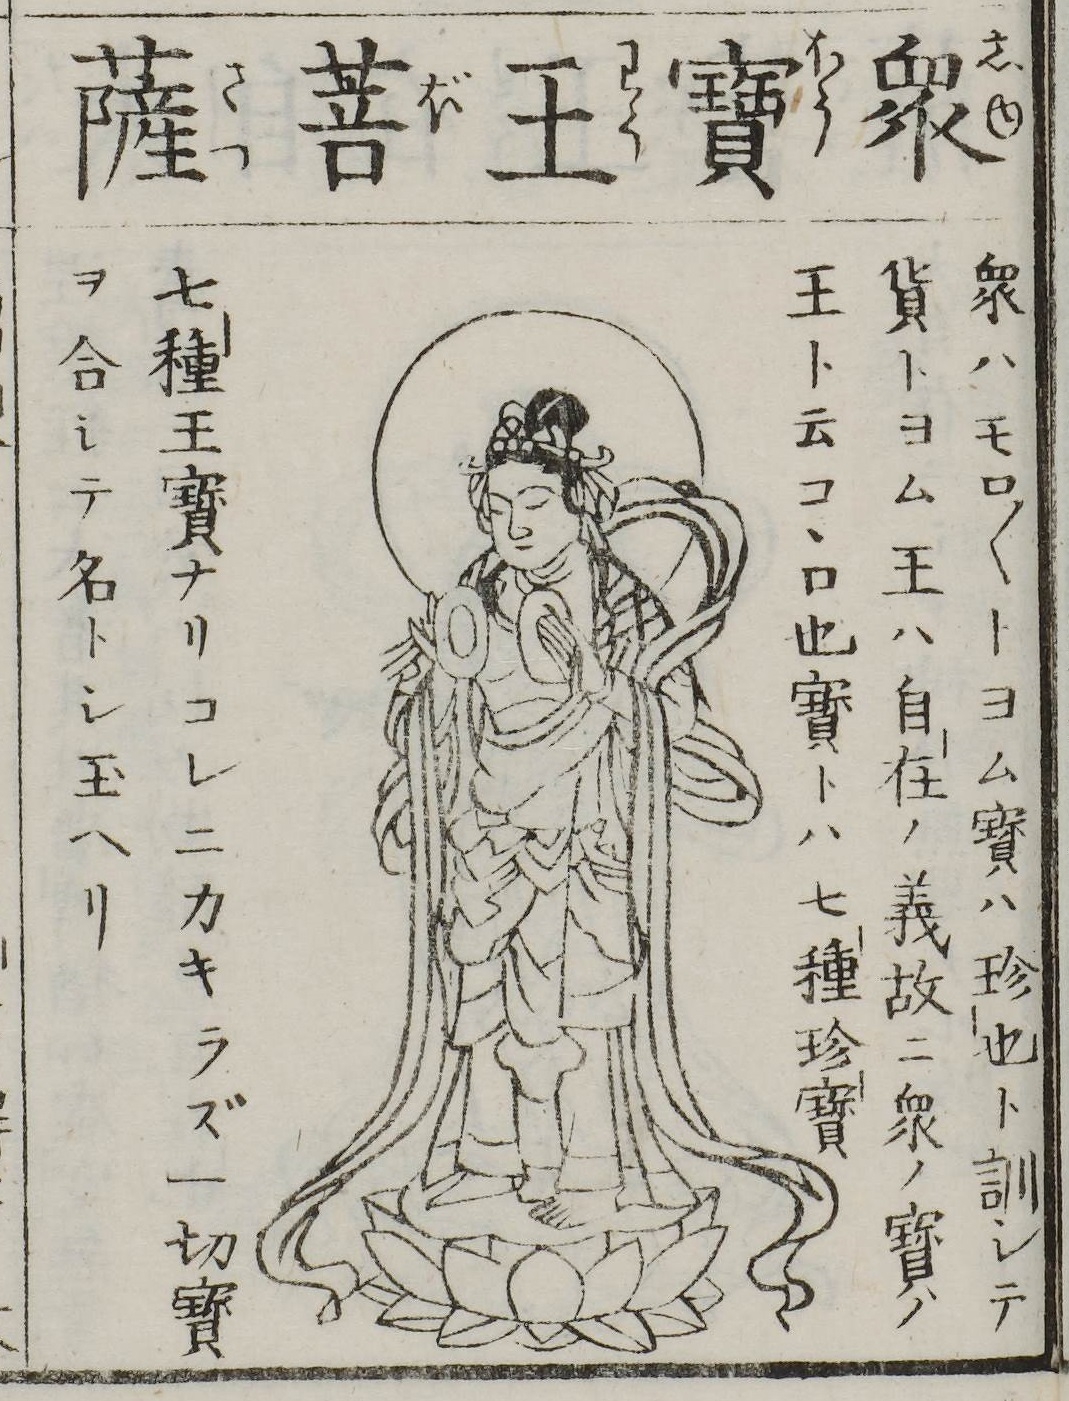 衆寶王菩薩
志ゆ
わう
ぼ
さつ
衆ハモロ〱トヨム寶ハ珍也ト訓シテ
貨トヨム王ハ自在ノ義故ニ衆ノ寶ノ
王ト云コヽロ也寶トハ七種珍寶
七種王寶ナリコレニカキラズ一切寶
ヲ合シテ名トシ玉ヘリ